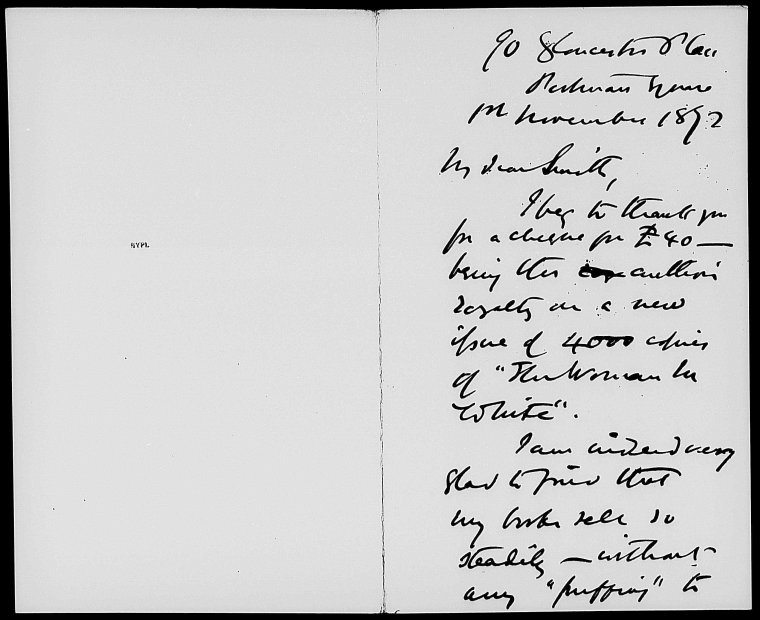 NYPL
90 Gloucester Place
Portman Square
1st November 1872
My dear Smith,
I beg to thank you
for a cheque for £40 —
being the author's
royalty on a new
issue of 4000 copies
of "The Woman In
White".
I am indeed very
glad to find that
my books sell so
steadily — without
any "puffing" to